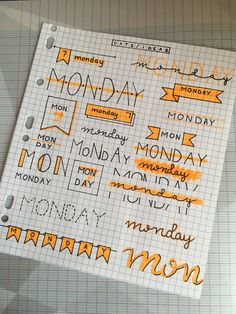 DATE / IDEAS
7 monday
monday
MONDAY
MONDAY
monday 7
MONDAY
MON 7
monday
MON
MONDAY
MONDAY
MON
MONDAY
MON DAY
monday
MONDAY
monday
MONDAY
monday
MONDAY
mon